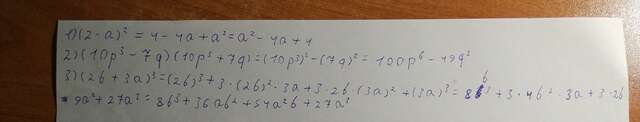 1)(2-a)² = 4-4a+a²=a²-4a+4
2)(10p³-7q)(10p³+7q)=(10p³)²-(7q)²=100p⁶-49q²
3)(2b+3a)³=(2b)³+3·(2b)²·3a+3·2b·(3a)²+(3a)³=8b³+3·4b²·3a+3·2b
·9a²+27a³=8b³+36ab²+54a²b+27a³